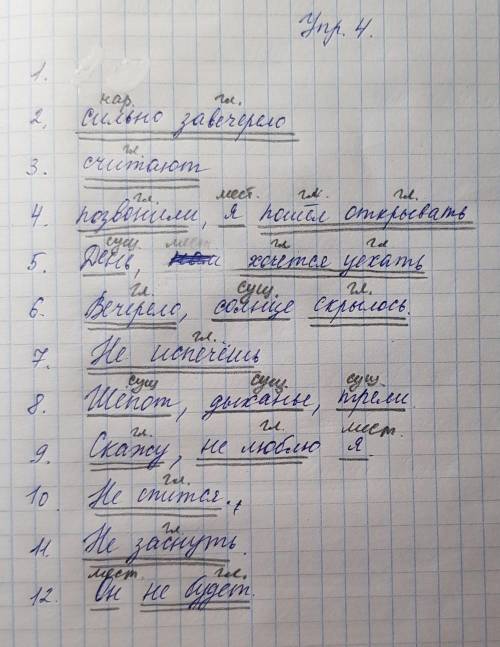 Упр. 4.
1.
нар. гл.
2. сильно завечерело
гл
3. считают
гл. мест. гл. гл.
4. позвонили, я пошёл открывать
сущ. мест гл гл
5. День, хочется уехать
гл. сущ. гл.
6. Вечерело, солнце скрылось.
гл.
7. Не испечёшь
сущ сущ. сущ.
8. Шёпот, дыханье, трели.
гл. гл. мест.
9. Скажу, не люблю я.
гл.
10. Не спится.,
гл
11. Не заснуть.
мест. гл.
12. Он не будет.